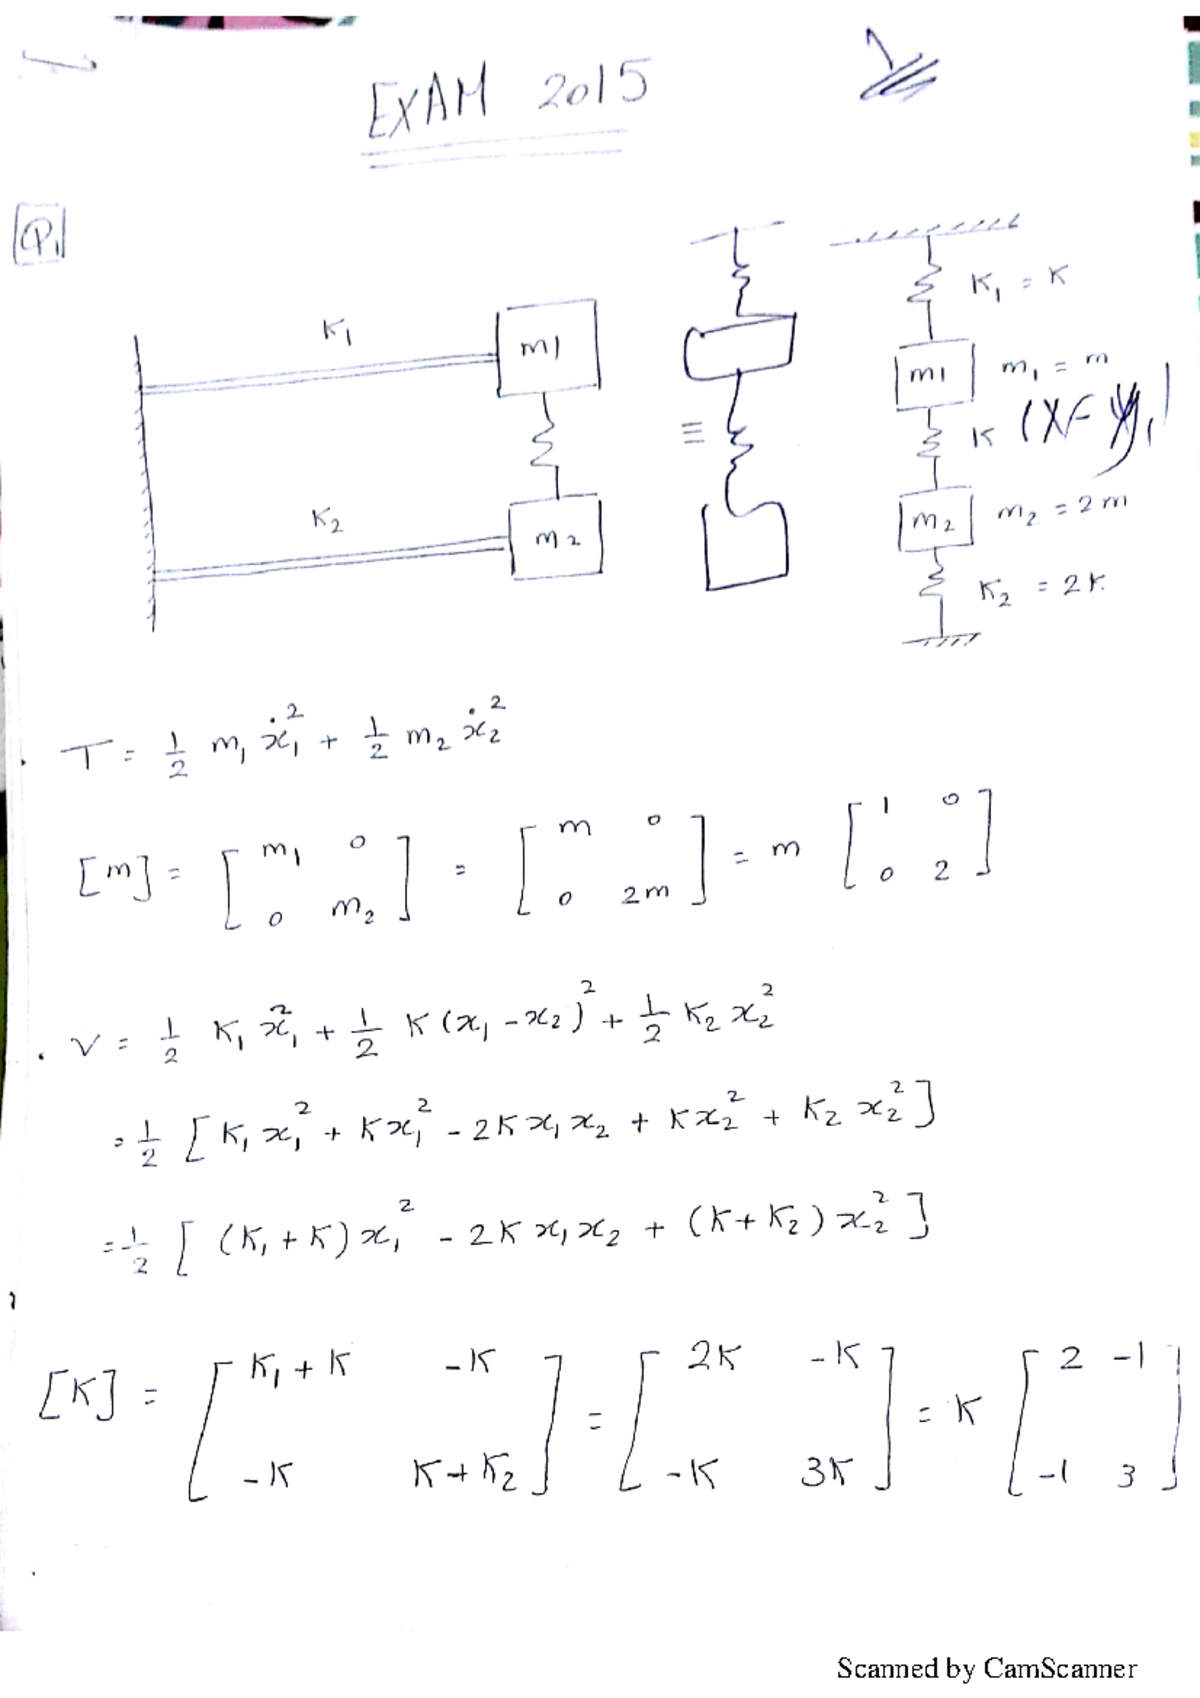 EXAM 2015
Q1
K1 m1
K2 m2
≡
K1 = K
m1 m1 = m
K
m2 m2 = 2m
K2 = 2K
T = 1/2 m1 ẋ1² + 1/2 m2 ẋ2²
[m] = [m1 0; 0 m2] = [m 0; 0 2m] = m [1 0; 0 2]
V = 1/2 K1 x1² + 1/2 K (x1 - x2)² + 1/2 K2 x2²
= 1/2 [K1 x1² + K x1² - 2K x1 x2 + K x2² + K2 x2²]
= 1/2 [(K1 + K) x1² - 2K x1 x2 + (K + K2) x2²]
[K] = [K1 + K -K; -K K + K2] = [2K -K; -K 3K] = K [2 -1; -1 3]
Scanned by CamScanner